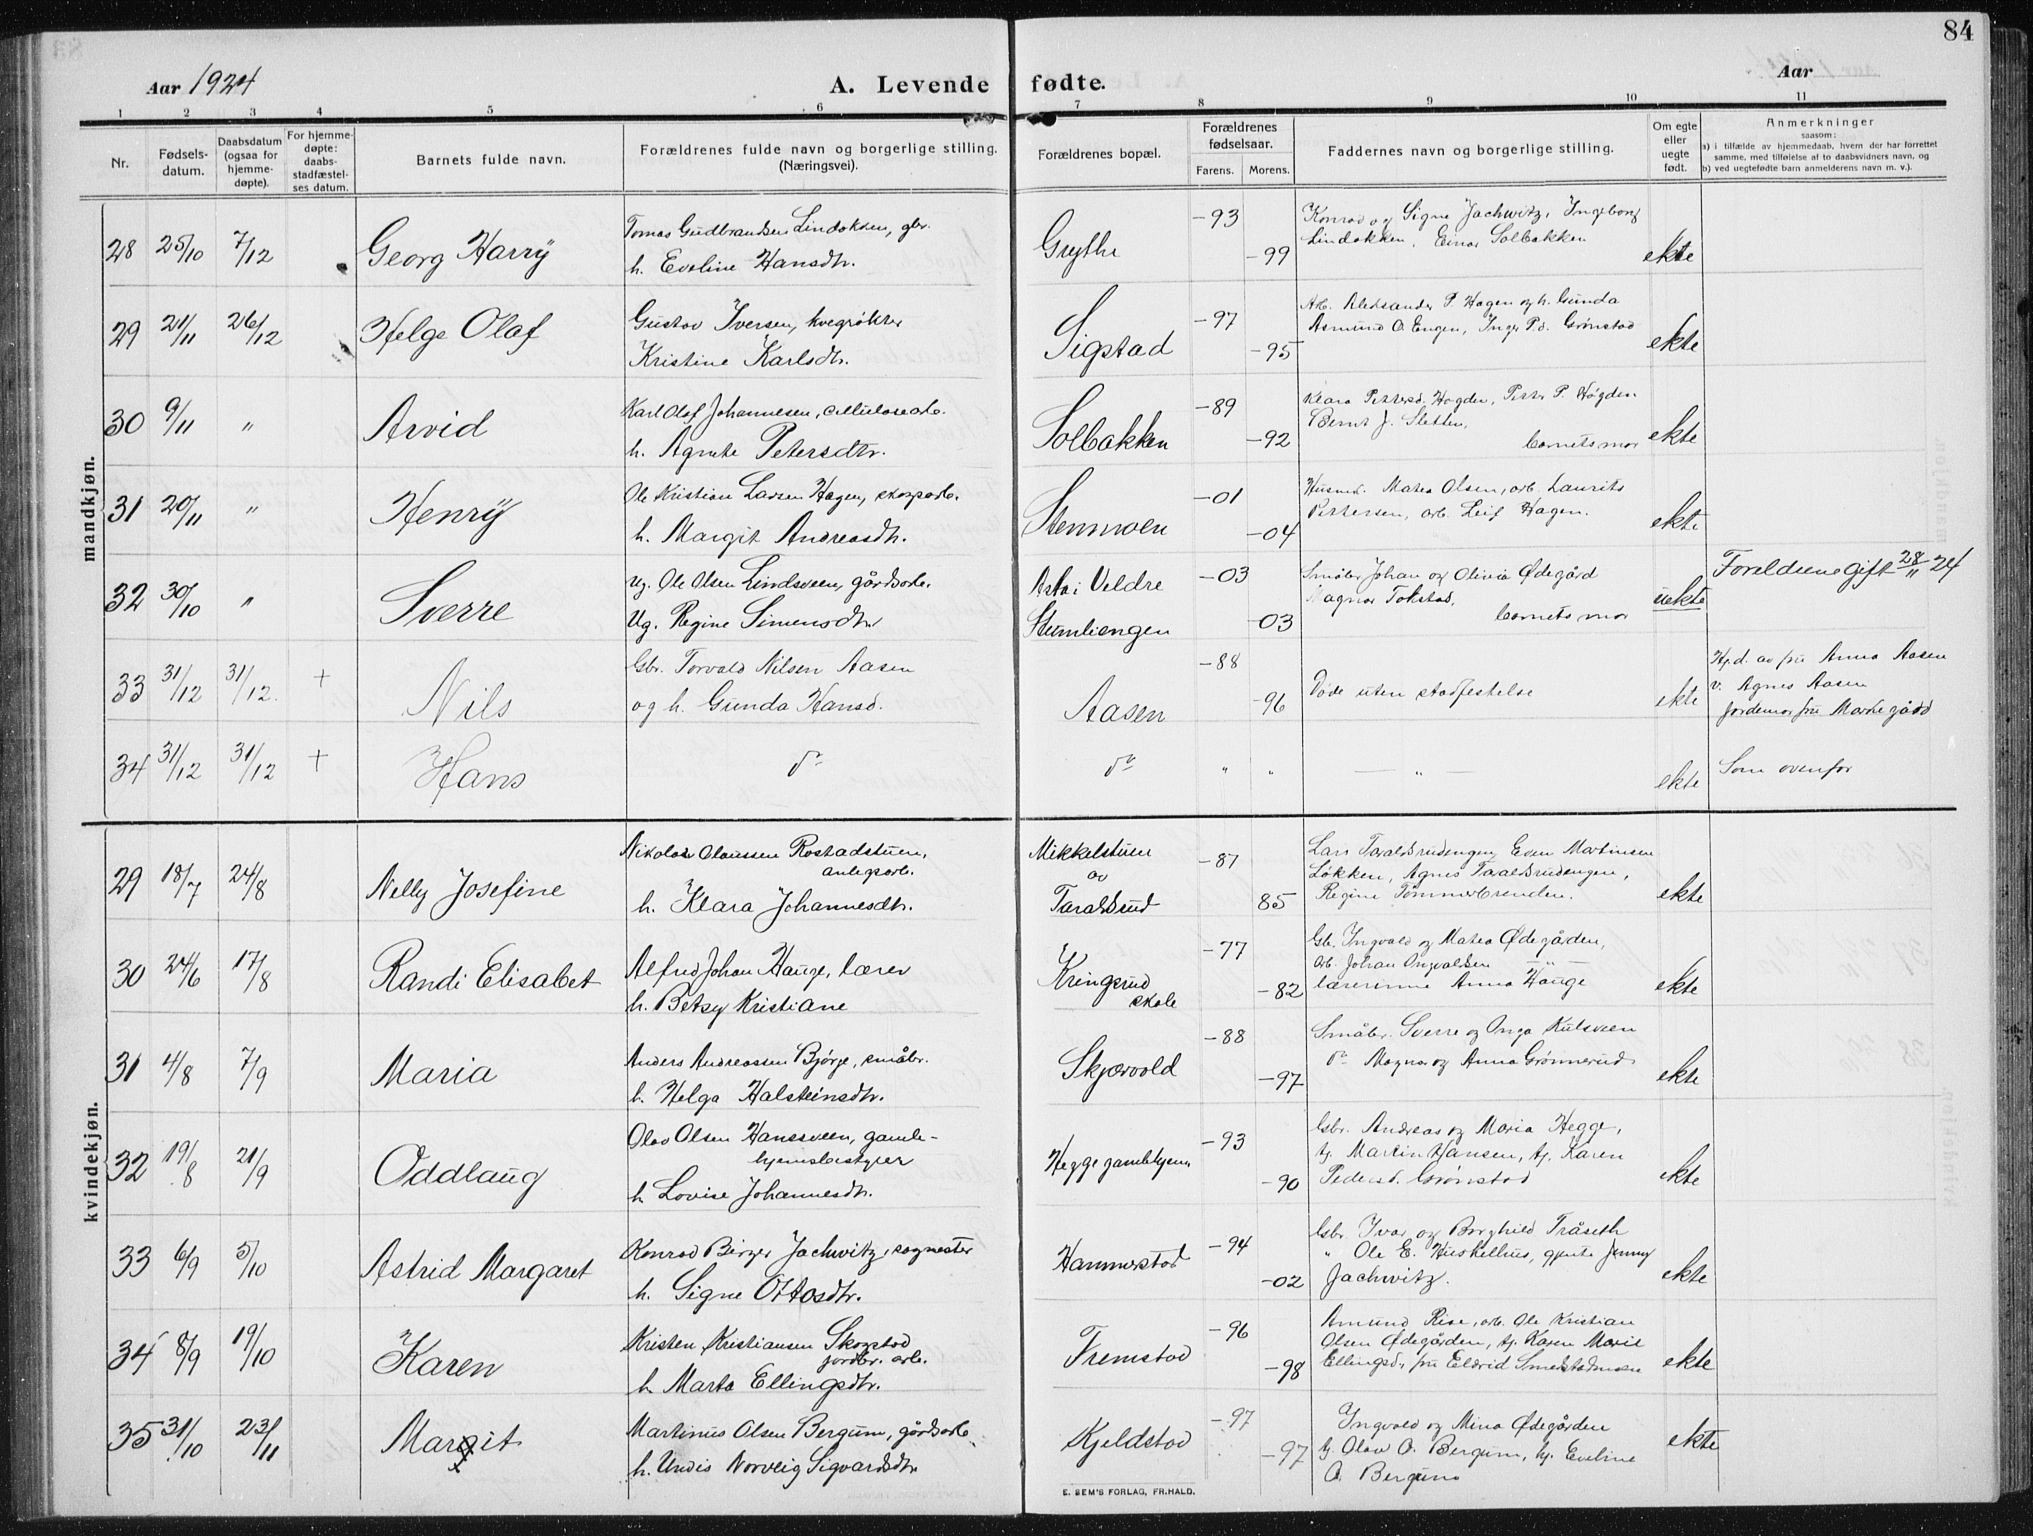 84
Aar 1924
A. Levende fødte.
Aar
1 2 3 4 5 6 7 8 9 10 11
Nr.
Fødsels-
datum.
Daabsdatum
(ogsaa for
hjemme-
døpte).
For hjemme-
døpte:
daabs-
stadfæstel-
ses datum.
Barnets fulde navn.
Forældrenes fulde navn og borgerlige stilling.
(Næringsvei).
Forældrenes bopæl.
Forældrenes
fødselsaar.
Farens. Morens.
Faddernes navn og borgerlige stilling.
Om egte
eller
uegte
født.
Anmerkninger
saasom:
a) i tilfælde av hjemmedaab, hvem der har forrettet
samme, med tilføielse af to daabsvidners navn, og
b) ved uegtefødte barn anmelderens navn m. v.).
mandkjøn.
28 25/10 7/12 Georg Harry
Tomas Gudbrandsen Lindokken, gbr.
h. Eveline Hansdtr.
Grythe
-93
-99
Konrad og Signe Jachwitz, Ingeborg
Lindokken, Einar Solbakken
ekte
29 21/11 26/12 Helge Olaf
Gustav Iversen, kvegrøkter
Kristine Karlsdtr.
Sigstad
-97
-95
Arb. Aleksander P. Hagen og h. Gunda
Asmund O. Engen, Inger P.d. Grønstad
ekte
30 9/11 " Arvid
Karl Olaf Johannesen, cellulosearb.
h. Agnete Petersdtr.
Solbakken
-89
-92
Klara Pettersd. Høgden, Petter P. Høgden
Bernt J. Sletten,
barnets mor
ekte
31 20/11 " Henry
Ole Kristian Larsen Hagen, skogsarb.
h. Margit Andreasdtr.
Stenmoen
-01
-04
Husm. Matea Olsen, arb. Laurits
Pettersen, arb. Leif Hagen.
ekte
32 30/10 " Sverre
Ug. Ole Olsen Lindsveen, gårdsarb.
Ug. Regine Simensdtr
Asta i Veldre
Stemliengen
-03
-03
Småbr. Johan og Olivia Ødegård
Magnar Tokstad,
barnets mor
uekte
Foreldrene gift 28/11 24
33 31/12 31/12. + Nils
Gbr. Torvald Nilsen Aasen
og h. Gunda Hansd.
Aasen
-88
-96
Døde uten stadfestelse
ekte
Hj.d. av fru Anna Aasen
v. Agnes Aasen
Jordemor fru Markegård
34 31/12 31/12 + Hans
do
do
" "
— " —
ekte
Som ovenfor
kvindekjøn.
29 18/7 24/8 Nelly Josefine
Nikolai Olaussen Rostadstuen,
anlegsarb.
h. Klara Johannesdtr.
Mikkelstuen
av
Taralsrud
-87
85
Lars Taralsrudengen, Even Martinsen
Løkken, Agnes Taalsrudengen,
Regine Tømmerbrenden.
ekte
30 24/6 17/8 Randi Elisabet
Alfred Johan Hauge, lærer
h. Betsy Kristiane
Kringsrud
skole
-77
-82
Gb. Ingvald og Matea Ødegården,
arb. Johan Ingvaldsen — " —
lærerinne Anna Hauge
ekte
31 4/8 7/9 Maria
Anders Andreassen Bjørge, småbr.
h. Helga Halsteinsdtr.
Skjærvold
-88
-97
Småbr. Sverre og Inga Kulsveen
do Magna og Anna Grønnerud
ekte
32 19/8 21/9 Oddlaug
Olav Olsen Hansveen, gamle-
hjemsbestyrer
h. Lovise Johannesdtr.
Hegge gamlehjem
-93
-90
Gbr. Andreas og Maria Hegge,
tj. Martin Hansen, tj. Karen
Pedersd. Grønstad
ekte
33 6/9 5/10 Astrid Margaret
Konrad Birger Jachwitz, sagmester
h. Signe Ottosdtr.
Hammerstad
-94
-02
Gbr. Ivar og Borghild Tråseth
" Ole E. Huskelhus, gjente Jenny
Jachwitz.
ekte
34 8/9 19/10 Karen
Kristen Kristiansen Skogstad
jordbr. arb.
h. Marta Ellingsdtr.
Fremstad
-96
-98
Amund Rise, arb. Ole Kristian
Olsen Ødegården, tj. Karen Marie
Ellingsd., fru Eldrid Smedstadmoen
ekte
35 31/10 23/11 Margit
Martinus Olsen Bergum, gårdsarb.
h. Undis Norveig Sigvardsdtr
Kjeldstad
-97
-97
Ingvald og Mina Ødegården
G. Olav O. Bergum, tj. Eveline
O. Bergum
ekte
E. SEM'S FORLAG, FR.HALD.